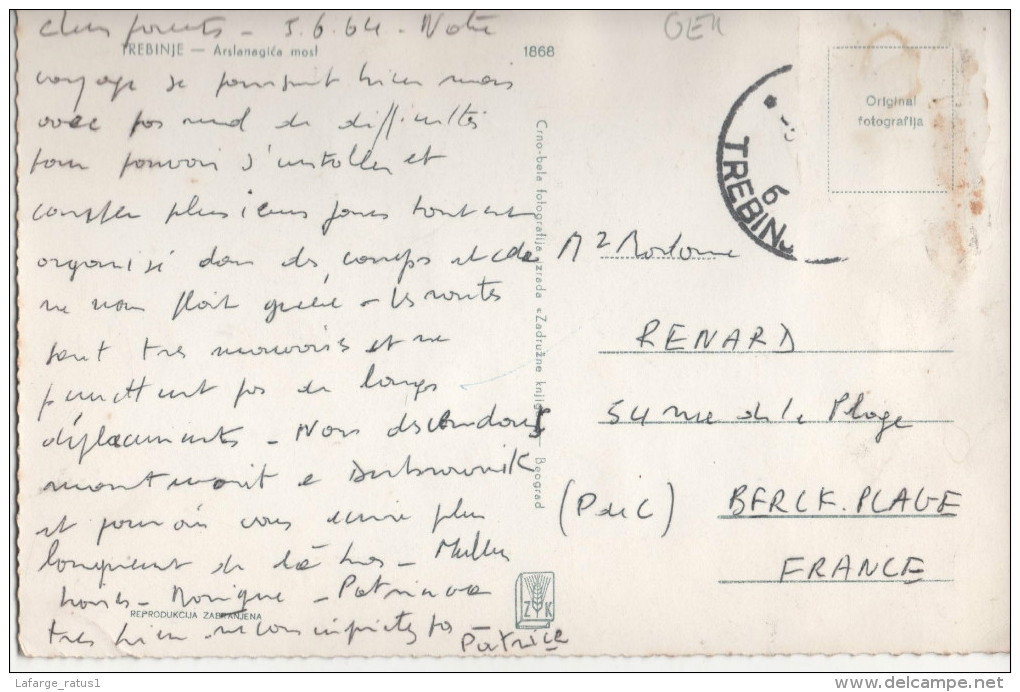 Chers parents - 5.6.64 - Notre
TREBINJE — Arslanagića most
1868
voyage se poursuit bien mais
avec pas mal de difficultés
pour pouvoir s'installer et
camper plusieurs jours tout est
organisé dans des camps et cela
ne nous plait guère - les routes
sont très mauvaises et ne
permettent pas de longs
déplacements - Nous descendons
maintenant à Dubrovnik
et pourrai vous écrire plus
longuement de là bas - Meilleurs
baisers - Monique - Patrice va
REPRODUKCIJA ZABRANJENA
très bien ne vous inquiétez pas
Patrice
Crno-bela fotografija izrada «Zadružne knjige» Beograd
ZK
GER
Original
fotografija
6
TREBINJ
Mr Madame
RENARD
54 rue de la Plage
(P de C) BERCK.PLAGE
FRANCE
Lafarge_ratus1
www.delcampe.net